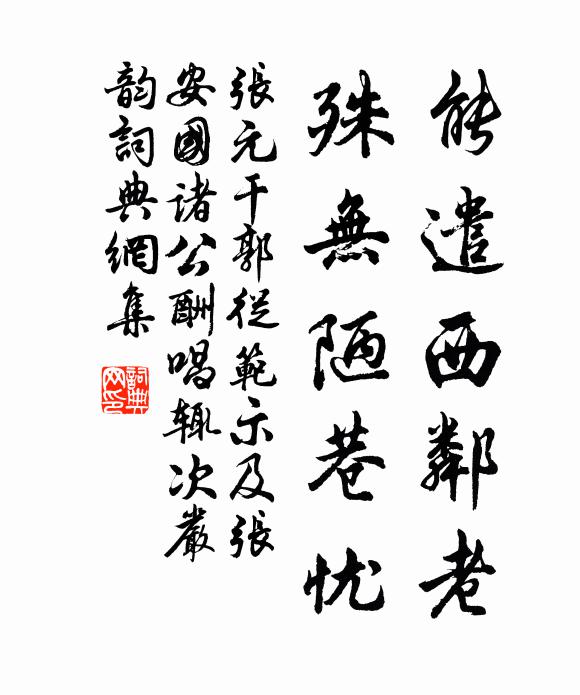 能遣西鄰老
殊無陋巷忧
張元干郭從範示及張
安國諸公酬唱輒次嚴
韵詞典網集
詞典
网印